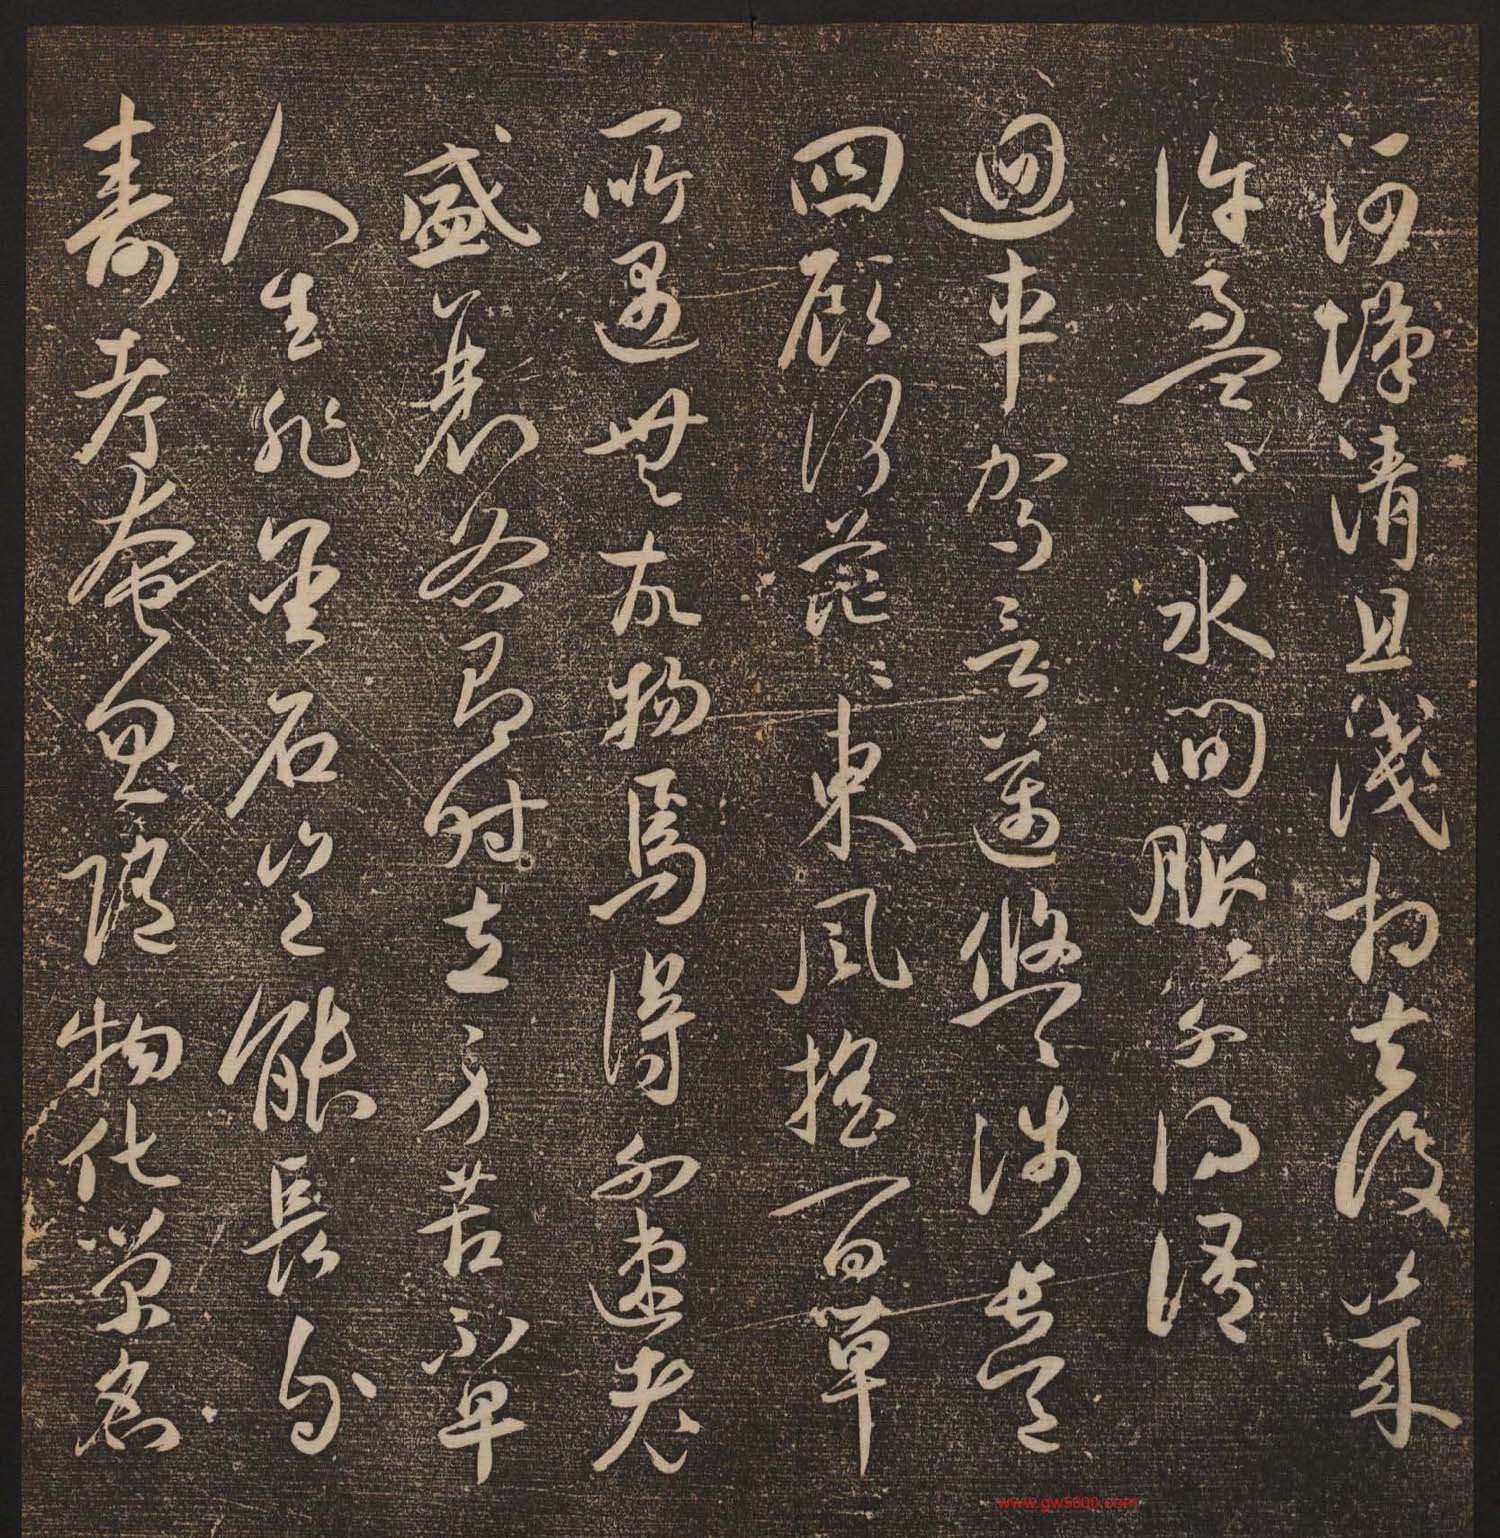 河漢清且淺相去復幾
許盈〻一水間脈〻不得語
迴車駕言邁悠〻涉長道
四顧何茫〻東風搖百草
所遇無故物焉得不速老
盛衰各有時立身苦不早
人生非金石豈能長壽
壽考奄忽隨物化榮名
www.gw5600.com